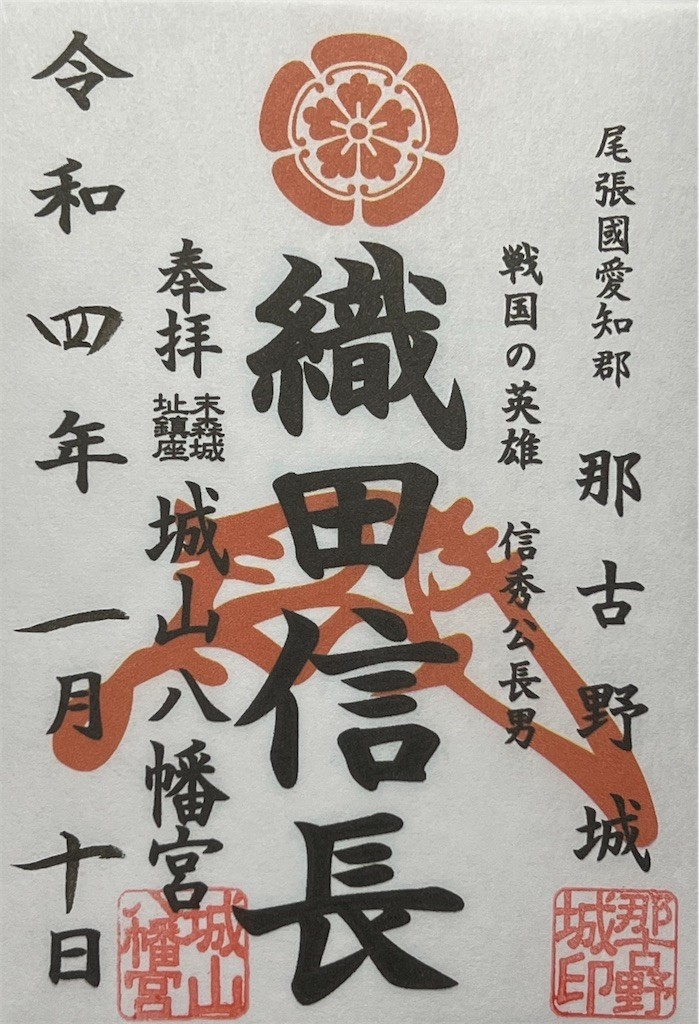 尾張國愛知郡 那古野城
戦国の英雄 信秀公長男
織田信長
奉拝 末森城址鎮座 城山八幡宮
令和四年 一月 十日
那古野城印
城山八幡宮